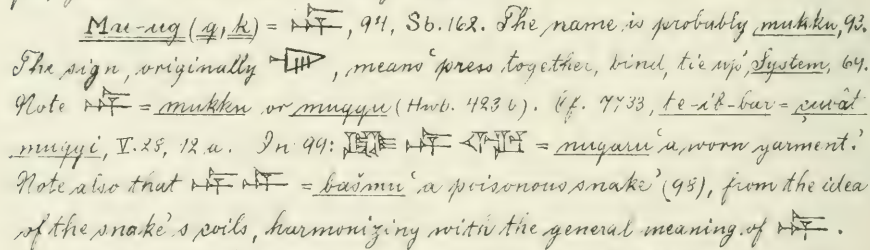 Mu-ug (g, k) = 𒈮, 94, Sb. 162. The name is probably mukku, 93.
The sign, originally , means 'press together, bind, tie up', System, 64.
Note 𒈮 = mukku or muqqu (Hwb. 423 b). Cf. 7733, te-ib-bar = çuvât
muqqi, V. 28, 12 a. In 99: 𒈮 = nugaru 'a worn garment.'
Note also that 𒈮 𒈮 = bašmu 'a poisonous snake' (98), from the idea
of the snake's coils, harmonizing with the general meaning of 𒈮.